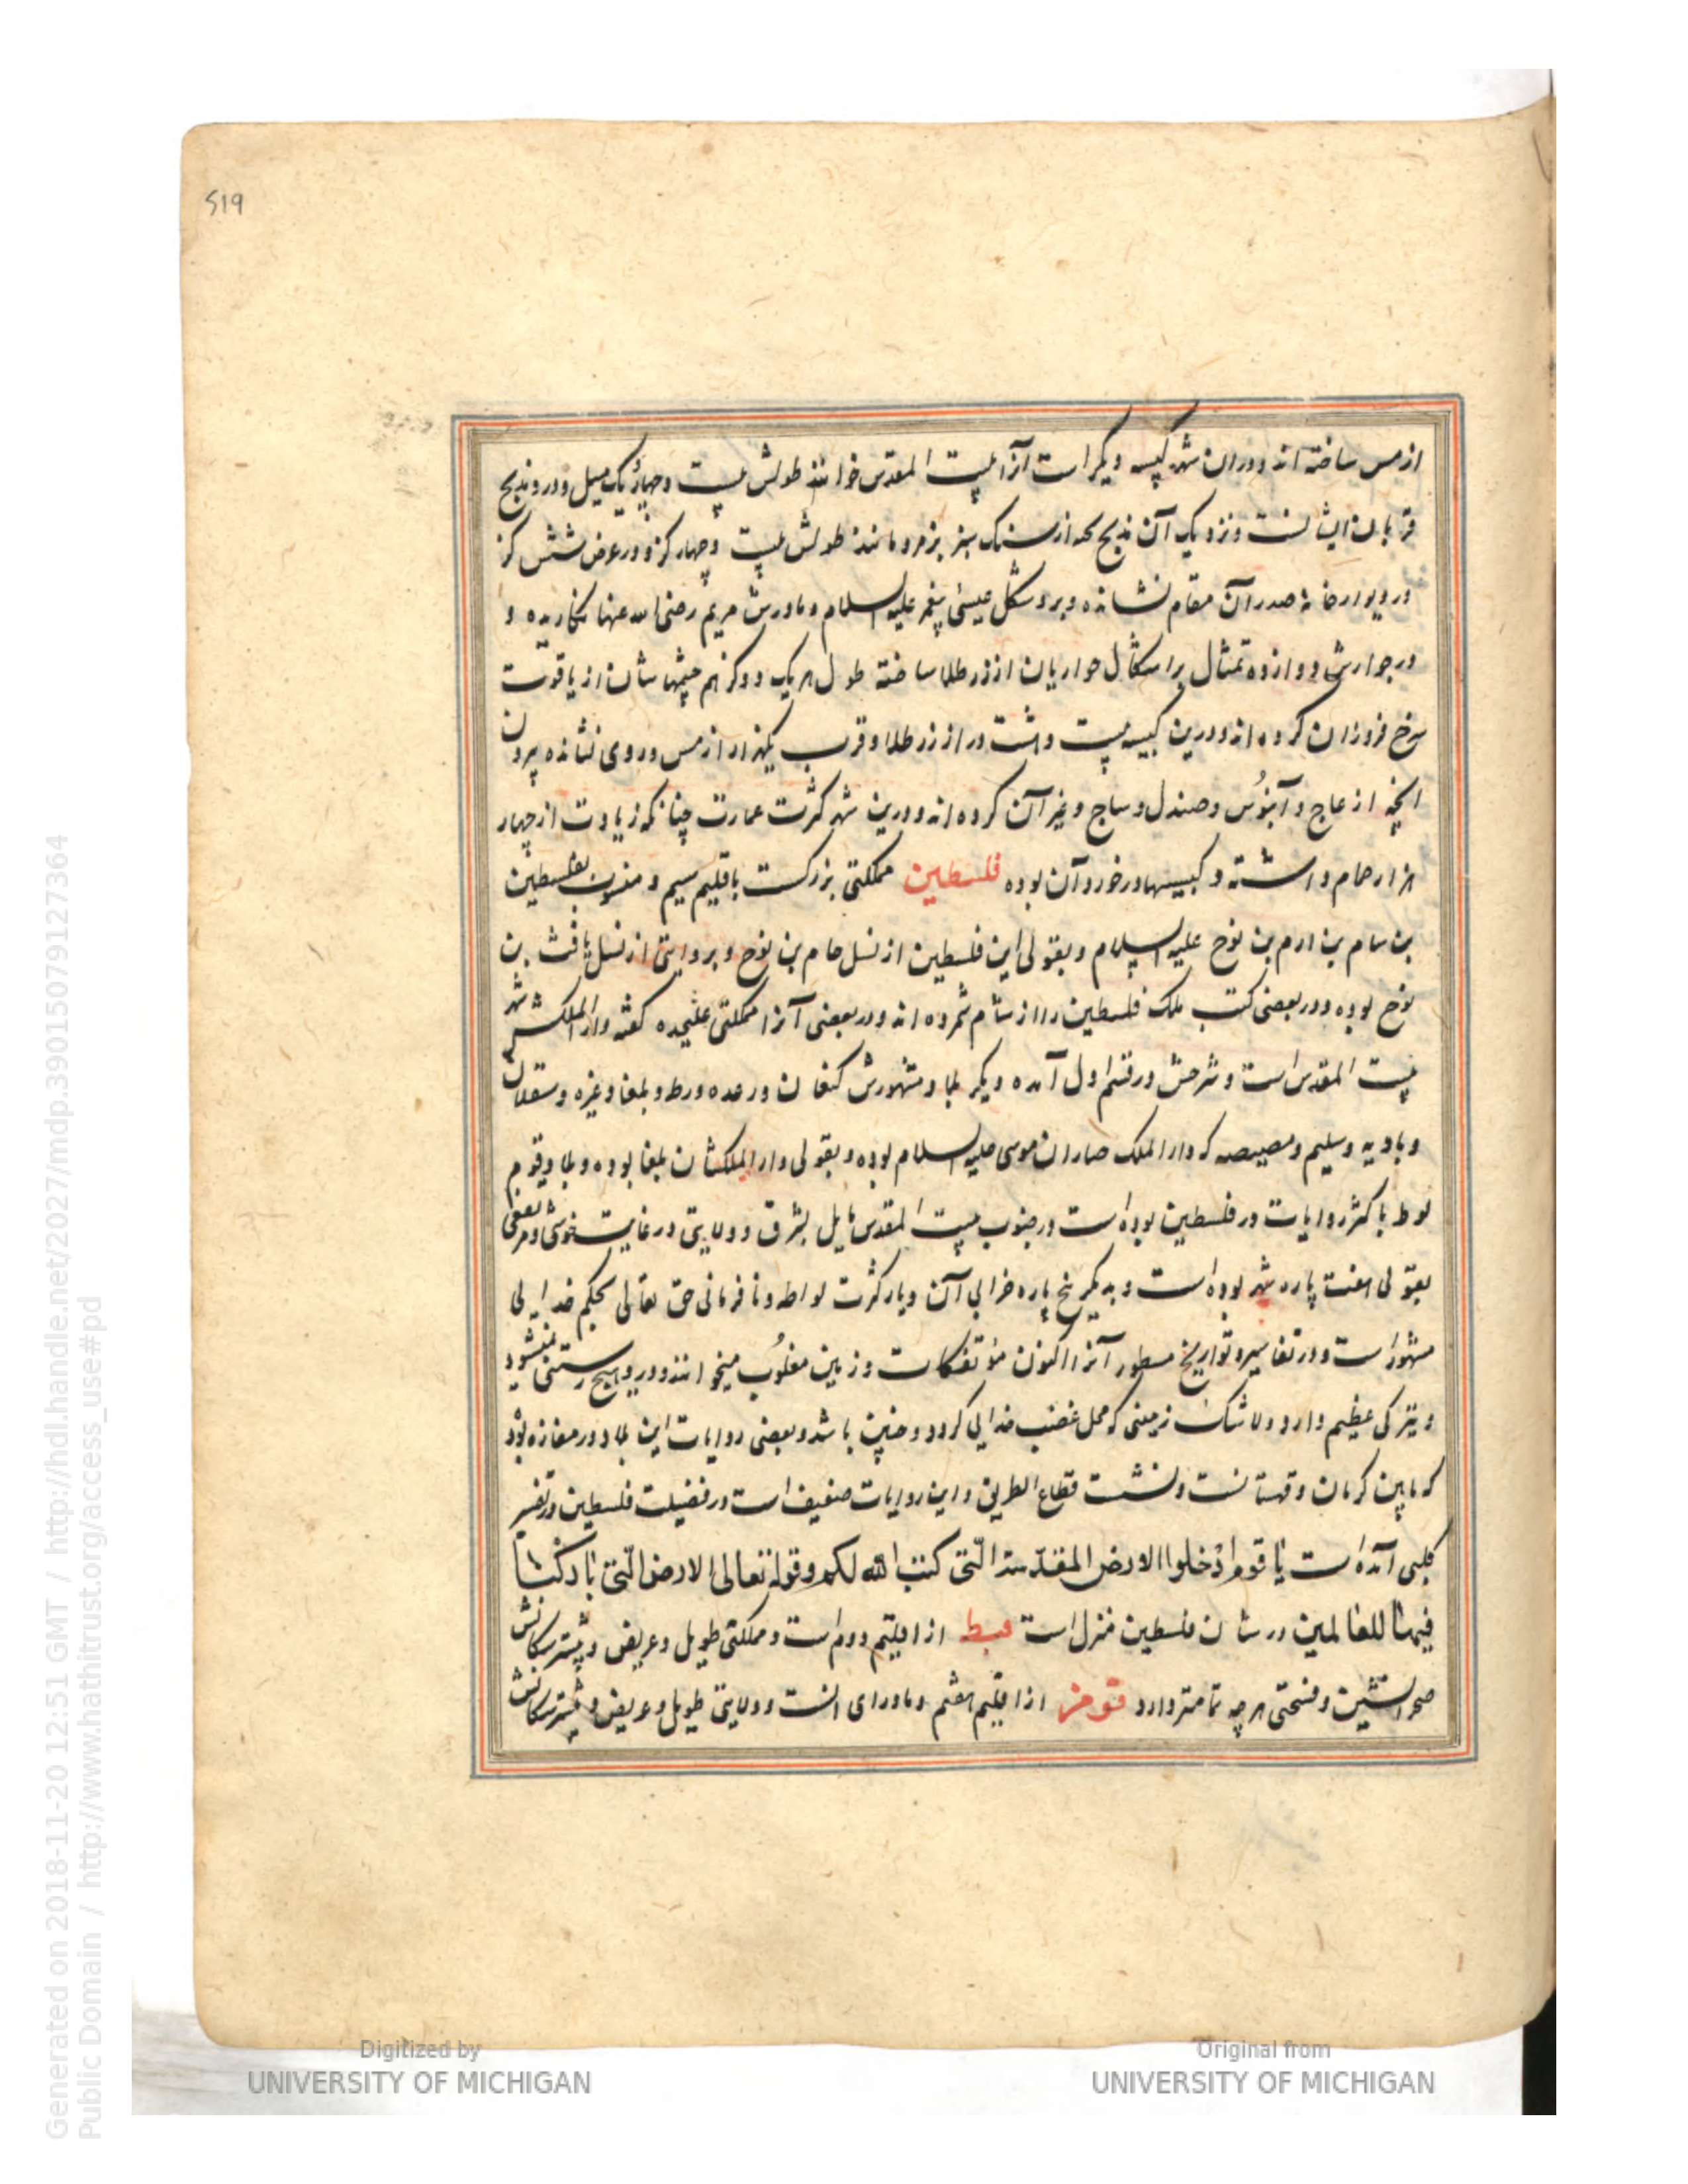 519
از مس ساخته اند و در ان شهر کنیسه دیکر است آنرا بیت المقدس خوانند طولش بیست و چهار یک میل و درو مذبح
قربان ایشانست و نزدیک آن مذبح از سنک سبز زمرد مانند طولش بیست و چهار کز و در عرض شش کز
در دیوار خانهٔ صدر آن مقام نشانده و برو شکل عیسی پیغمبر علیه السلام و مادرش مریم رضی الله عنها نکاریده و
در جوارش دوازده تمثال بر اشکال حواریان از زر طلا ساخته طول هر یک دو کز نیم چشمهاشان از یاقوت
سرخ فروزان کرده اند و درین کنیسه بیست و هشت در از زر طلا و قرب یکهزار از مس درو نشانده بیرون
انچه از عاج و آبنوس و صندل و ساج و غیر آن کرده اند و درین شهر کثرت عمارت چنانکه زیادت از چهار
هزار حمام داشته و کنیسها در خورد آن بوده فلسطین مملکتی بزرکست باقلیم سیم و منسوب بفلسطین
بن سام بن ارم بن نوح علیه السلام و بقولی این فلسطین از نسل حام بن نوح و بروایتی از نسل یافث بن
نوح بوده و در بعضی کتب ملک فلسطین را از شام شمرده اند و در بعضی آنرا مملکتی علیحده کفته دار الملکش شهر
بیت المقدس است و شرحش در قسم اول آمده دیکر بلاد مشهورش کنعان و رعده و رط و بلغا و غزه و عسقلان
و بادیه و سلیم و مصیصه که دار الملک جباران موسی علیه السلام بوده و بقولی دار الملکشان بلقا بوده و بلاد قوم
لوط باکثر روایات در فلسطین بوده است در جنوب بیت المقدس مایل بشرق و ولایتی در غایت خوشی و مرتفعی
بقولی هفت پاره شهر بوده است و بدیکر پنج پاره خرابی آن دیار کثرت لواطه و نا فرمانی حق تعالی بحکم خدایی
مشهور است و در تفاسیر و تواریخ مسطور آنرا اکنون مؤتفکات و زمین مقلوب میخوانند و درو هیچ رستنی نمیشود
و تیرکی عظیم دارد و لاشک زمینی که محل غضب خدایی کردد چنین باشد و بعضی روایات این بلاد در مفازه بود
که مابین کرمان و قهستانست و نشست قطاع الطریق و این روایات ضعیف است در فضیلت فلسطین در تفسیر
کلبی آمده است یا قوم ادخلوا الارض المقدسة التی کتب الله لکم و قوله تعالی الارض التی بارکنا
فیها للعالمین در شان فلسطین منزل است قبط از اقلیم دوم است و مملکتی طویل و عریض و بیشتر سکانش
صحرانشین و فسحتی هر چه تمامتر دارد قومز از اقلیم هفتم و ماورای انست و ولایتی طویل و عریض و بیشتر سکانش
Generated on 2018-11-20 12:51 GMT / http://hdl.handle.net/2027/mdp.39015079127364
Public Domain / http://www.hathitrust.org/access_use#pd
Digitized by
UNIVERSITY OF MICHIGAN
Original from
UNIVERSITY OF MICHIGAN